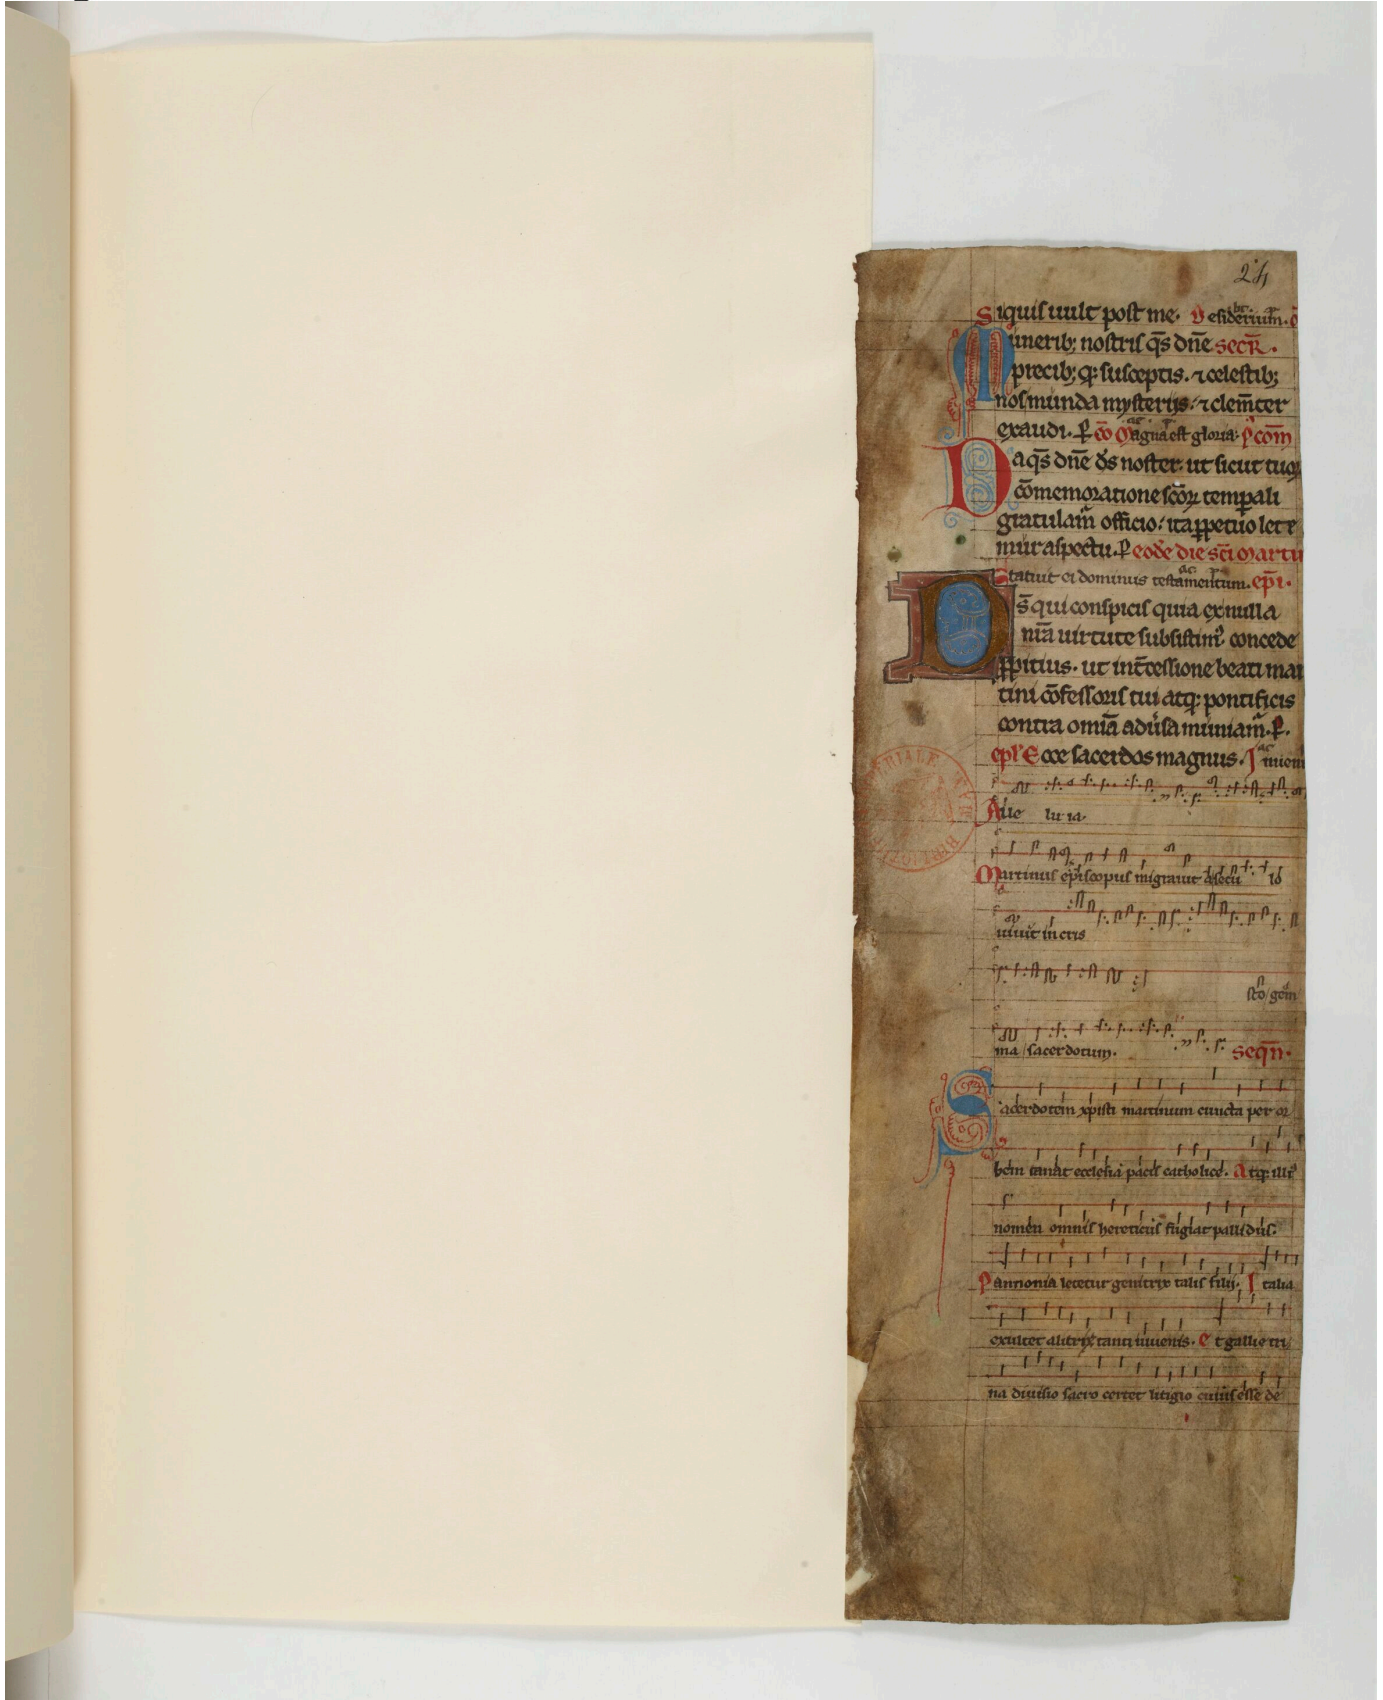 24
Siquis uult post me. Desiderium. c̄
Munerib; nostris q̄s dn̄e secr̄.
precib; q; susceptis. ⁊ celestib;
nos munda mysterijs. ⁊ clem̄ter
exaudi. P̄ cō Magna est gloria. p̄com̄
Da q̄s dn̄e d̄s noster. ut sicut tuoꝝ
cōmemoratione sc̄oꝝ temp̄ali
gratulam̄ officio. ita ꝑpetuo lete
mur aspectu. P̄ eodē die sc̄i Marti
Statuit ei dominus testamentum. ep̄i.
Ds̄ qui conspicis quia ex nulla
nr̄a uirtute subsistim᷒ concede
ꝓpitius. ut int̄cessione beati mar
tini cōfessoris tui atq; pontificis
contra omīa adūsa muniam̄. P̄.
epl̄ Ecce sacerdos magnus. Inueni
Alle lu ia.
Martinus ep̄iscopus migrauit a secu lo
uiuit in xp̄is
sto gem
ma sacerdotum. seqn̄.
Sacerdotem xp̄isti martinum cuncta per or
bem canat ecclesia pacis catholice. Atq; illi᷒
nomen omnis hereticus fugiat pallidus.
Pannonia letetur genitrix talis filii. Italia
exultet alitrix tanti iuuenis. Et gallie tri
na diuisio sacro certet litigio cuius esse de